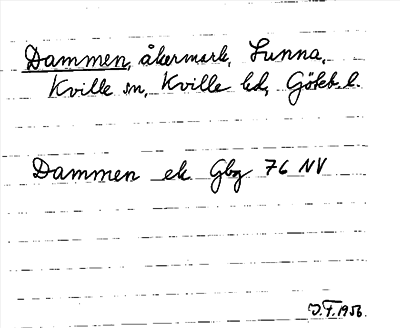 Dammen, åkermark, Lunna,
Kville sn, Kville hd, Göteb. l.
Dammen ek Gbg 76 NV
J.F. 1956.